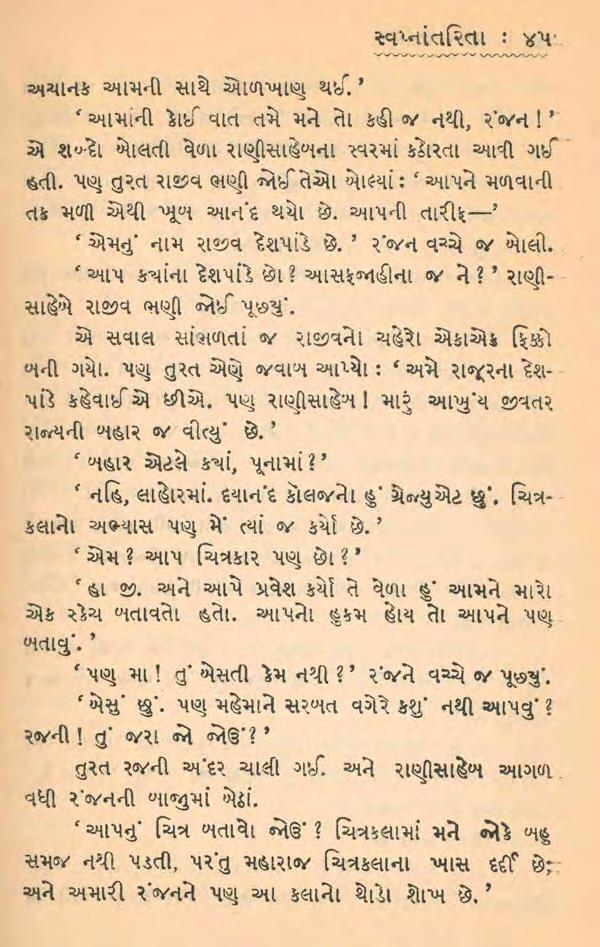 સ્વપ્નાંતરિતા : ૪૫
અચાનક આમની સાથે ઓળખાણ થઈ.’
‘આમાંની કોઈ વાત તમે મને તો કહી જ નથી, રંજન!’
એ શબ્દો બોલતી વેળા રાણીસાહેબના સ્વરમાં કઠોરતા આવી ગઈ
હતી. પણ તુરત રાજીવ ભણી જોઈ તેઓ બોલ્યાં: ‘આપને મળવાની
તક મળી એથી ખૂબ આનંદ થયો છે. આપની તારીફ—’
‘એમનું નામ રાજીવ દેશપાંડે છે.’ રંજન વચ્ચે જ બોલી.
‘આપ કયાંના દેશપાંડે છો? આસફજાહીના જ ને?’ રાણી-
સાહેબે રાજીવ ભણી જોઈ પૂછયું.
એ સવાલ સાંભળતાં જ રાજીવનો ચહેરો એકાએક ફિક્કો
બની ગયો. પણ તુરત એણે જવાબ આપ્યો: ‘અમે રાજૂરના દેશ-
પાંડે કહેવાઈએ છીએ. પણ રાણીસાહેબ! મારું આખુંય જીવતર
રાજ્યની બહાર જ વીત્યું છે.’
‘બહાર એટલે કયાં, પૂનામાં?’
‘નહિ, લાહોરમાં. દયાનંદ કૉલજનો હું ગ્રેજ્યુએટ છું. ચિત્ર-
કલાનો અભ્યાસ પણ મેં ત્યાં જ કર્યો છે.’
‘એમ? આપ ચિત્રકાર પણ છો?’
‘હા જી. અને આપે પ્રવેશ કર્યો તે વેળા હું આમને મારો
એક સ્કેચ બતાવતો હતો. આપનો હુકમ હોય તો આપને પણ
બતાવું.’
‘પણ મા! તું બેસતી કેમ નથી?’ રંજને વચ્ચે જ પૂછયું.
‘બેસું છું. પણ મહેમાને સરબત વગેરે કશું નથી આપવું?
રજની! તું જરા જો જોઉં?’
તુરત રજની અંદર ચાલી ગઈ. અને રાણીસાહેબ આગળ
વધી રંજનની બાજુમાં બેઠાં.
‘આપનું ચિત્ર બતાવો જોઉં? ચિત્રકલામાં મને જોકે બહુ
સમજ નથી પડતી, પરંતુ મહારાજ ચિત્રકલાના ખાસ દર્દી છે;
અને અમારી રંજનને પણ આ કલાનો થોડો શોખ છે.’